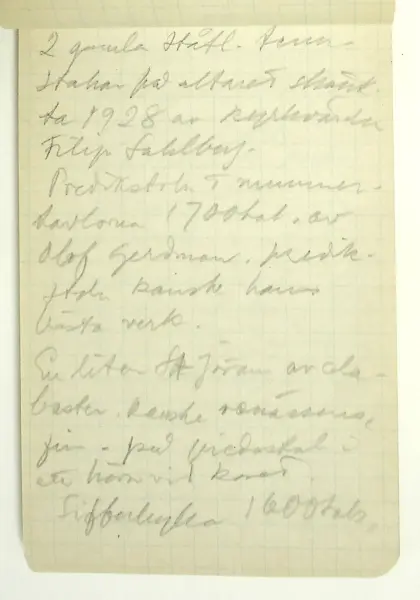 2 gamla Ståtl. tenn-
stakar på altaret skänk-
ta 1928 av kyrkvärden
Filip Sahlberg.
Predikstoln & nummer-
tavlorna 1700tal. av
Olof Gerdman. predik-
stoln kanske hans
bästa verk.
En liten St Jöran av ala-
baster. kanske renässans,
fin - på piedestal i
ett hörn vid koret.
1600tal.